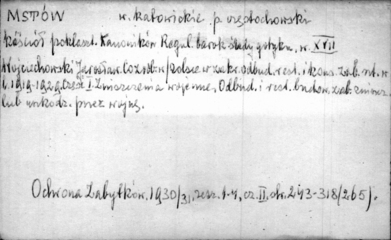 MSTÓW w. katowickie p. częstochowski
kościół poklaszt. Kanoników Regul. barok ślady gotyku, w. XVII
Wojciechowski Jarosław. Co zrob. w Polsce w zakr. odbud. rest. i kons. zab. szt. w
l. 1919-1929. Część I. Zniszczenia wojenne, Odbud. i rest. budow. zab. zniszcz.
lub uszkodz. przez wojnę.
Ochrona Zabytków, 1930/31, zesz. 1-4, cz. II, str. 243-318 (265).